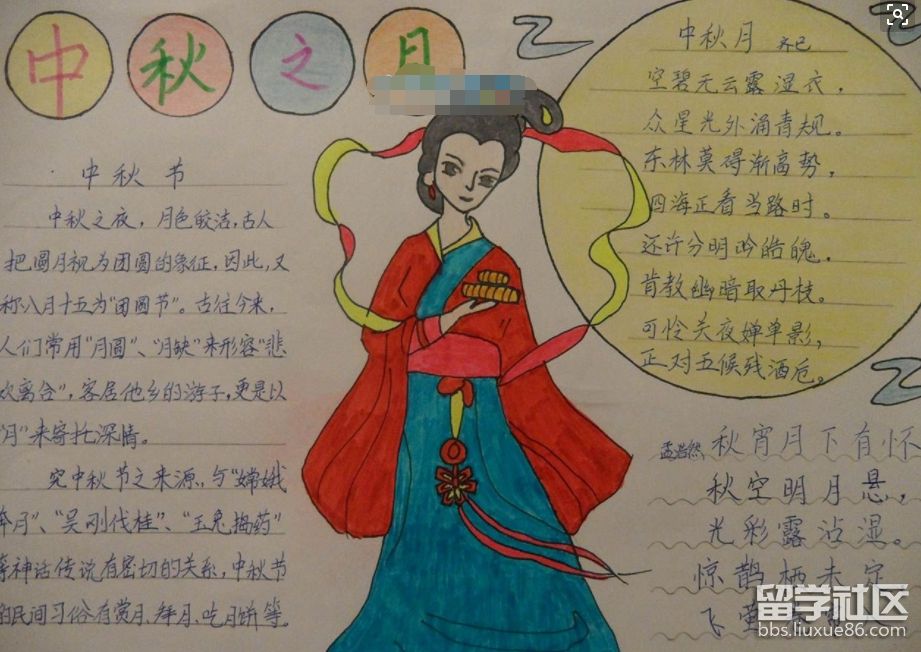 中秋之月
中秋节
中秋之夜，月色皎洁，古人
把圆月视为团圆的象征，因此，又
称八月十五为"团圆节"。古往今来，
人们常用"月圆"、"月缺"来形容"悲
欢离合"，客居他乡的游子，更是以
"月"来寄托深情。
究中秋节之来源，与"嫦娥
奔月"、"吴刚伐桂"、"玉兔捣药"
等神话传说有密切的关系，中秋节
的民间习俗有赏月、拜月、吃月饼等。
中秋月 齐己
空碧无云露湿衣，
众星光外涌青规。
东林莫碍渐高势，
四海正看当路时。
还许分明吟皓魄，
肯教幽暗取丹枝。
可怜关夜婵单影，
正对五候残酒卮。
孟浩然 秋宵月下有怀
秋空明月悬，
光彩露沾湿。
惊鹊栖未定
飞萤
留学社区
bbs.liuxue86.com